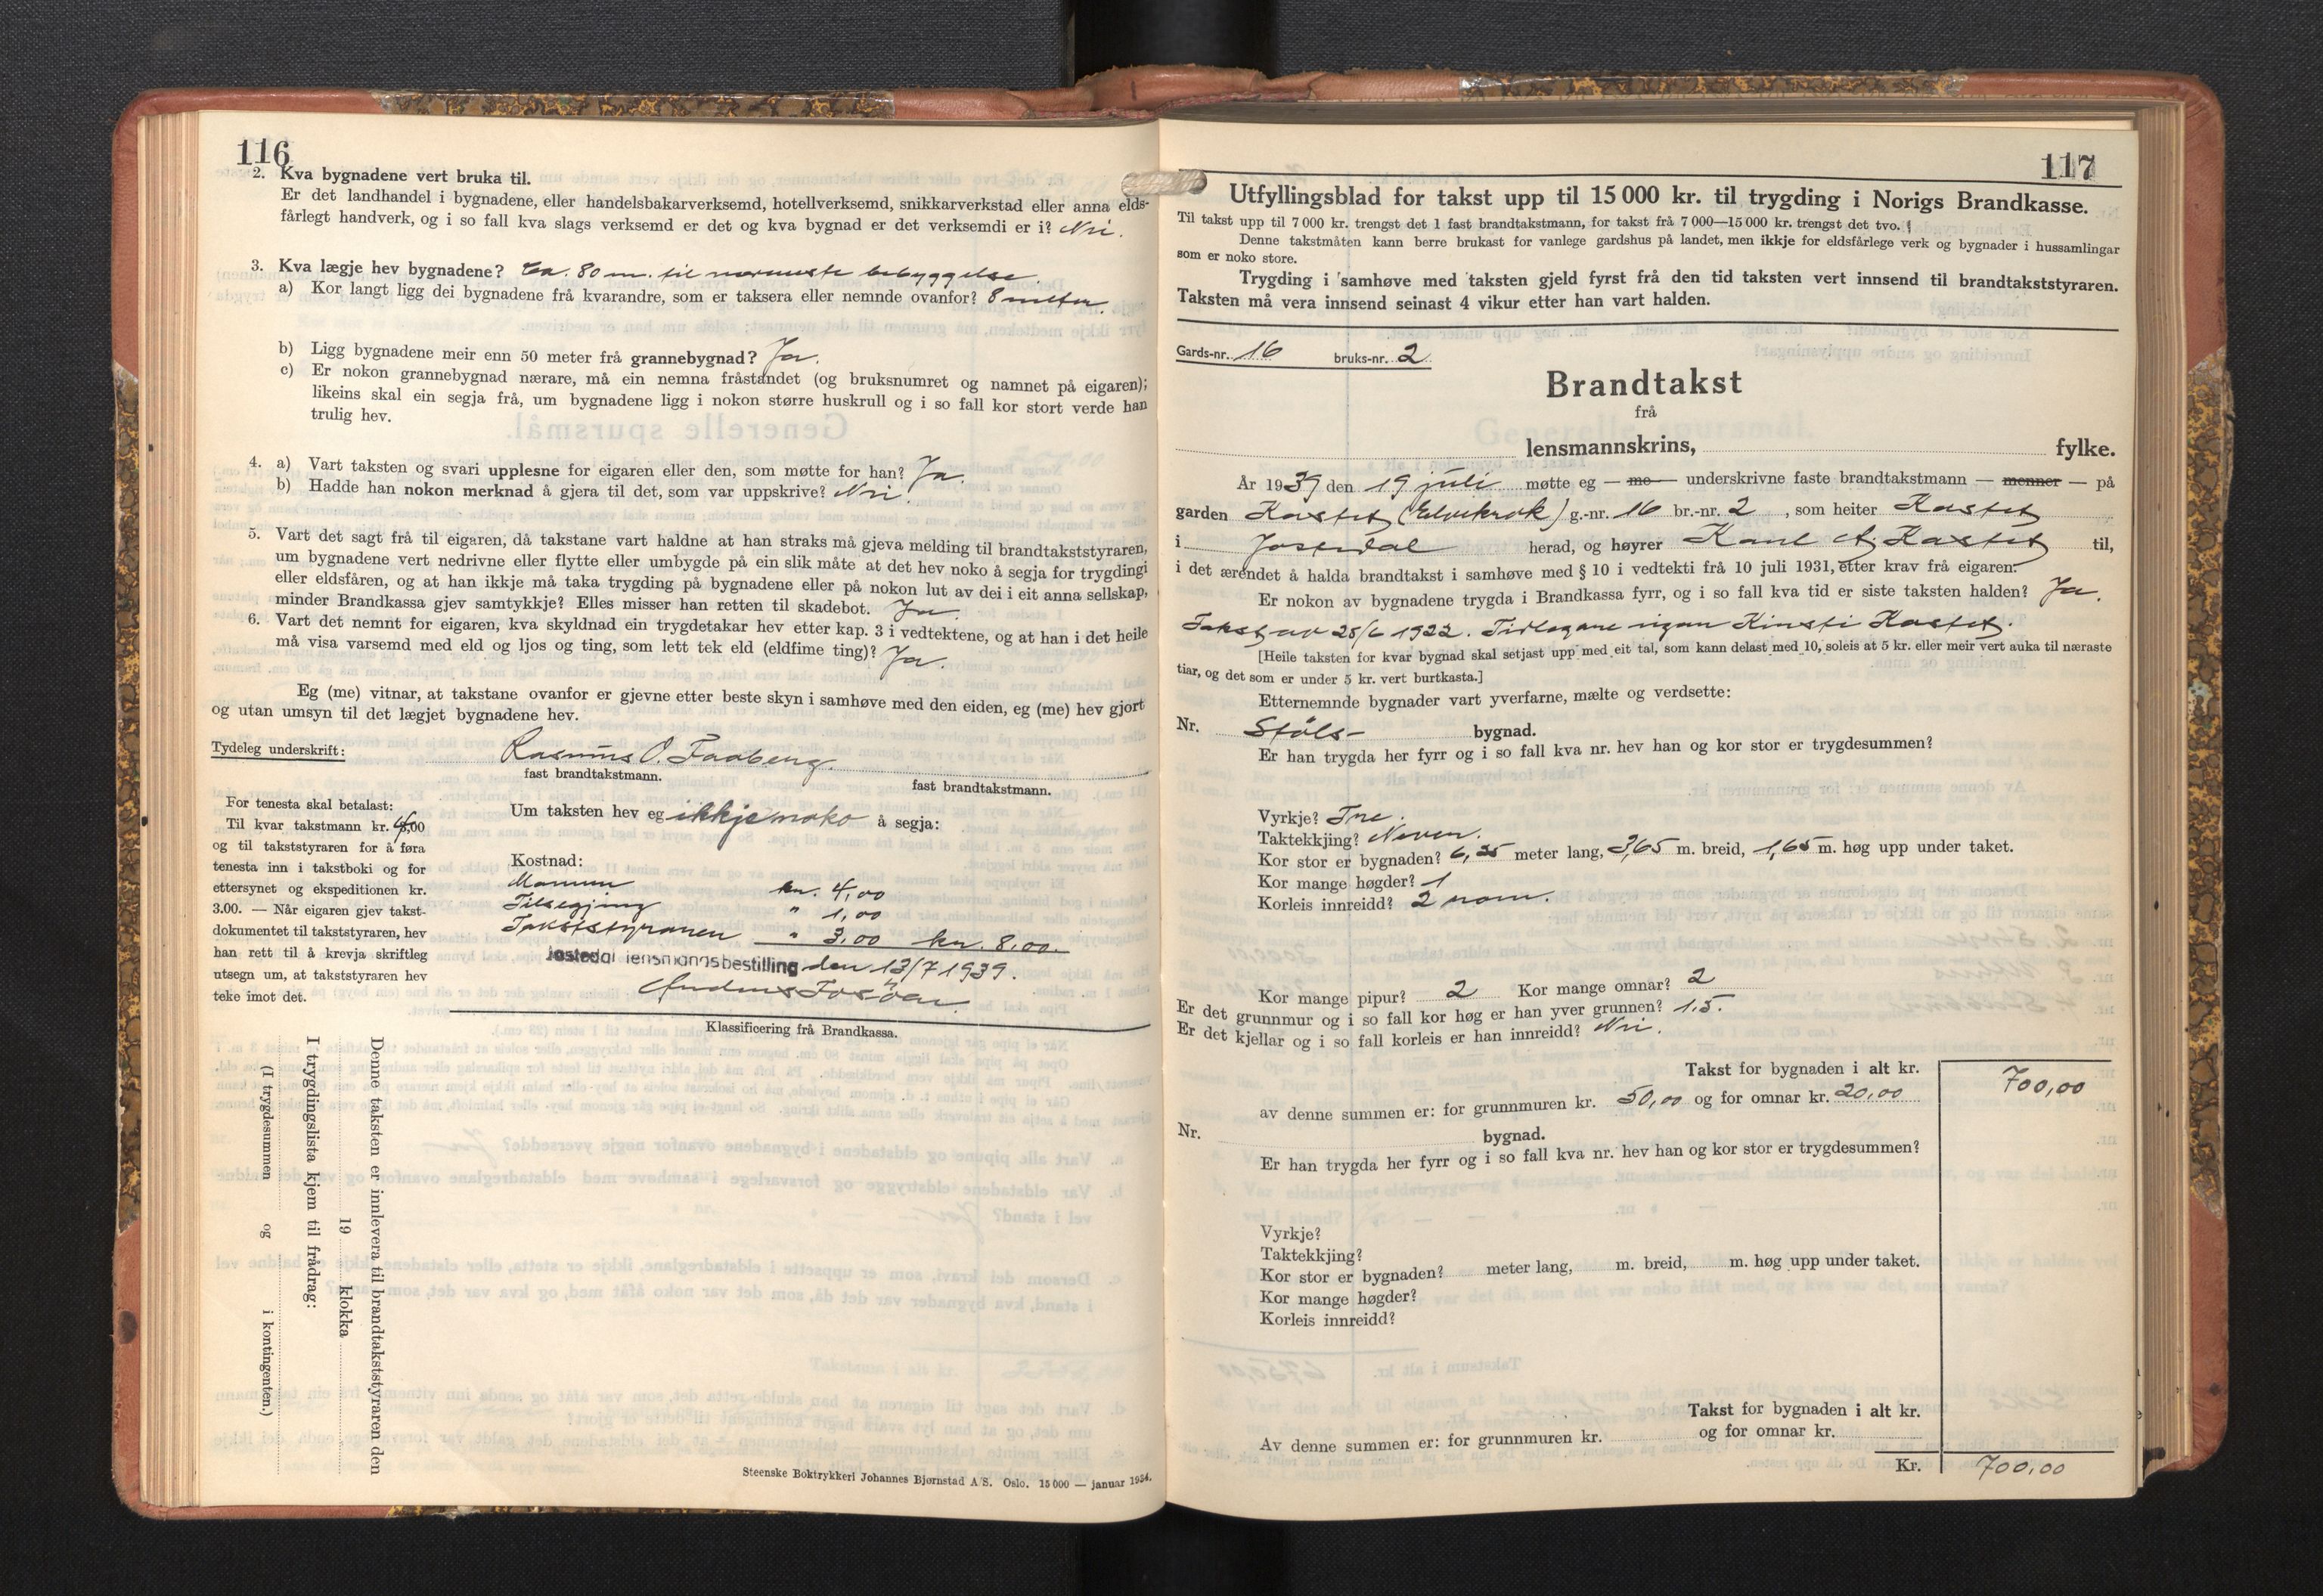 116
2. Kva bygnadene vert bruka til.
Er det landhandel i bygnadene, eller handelsbakarverksemd, hotellverksemd, snikkarverkstad eller anna elds-
fårlegt handverk, og i so fall kva slags verksemd er det og kva bygnad er det verksemdi er i? Nei.
3. Kva lægje hev bygnadene? Ca. 80 m. til nærmeste bebyggelse.
a) Kor langt ligg dei bygnadene frå kvarandre, som er taksera eller nemnde ovanfor? 8 meter.
b) Ligg bygnadene meir enn 50 meter frå grannebygnad? Ja.
c) Er nokon grannebygnad nærare, må ein nemna fråstandet (og bruksnumret og namnet på eigaren);
likeins skal ein segja frå, um bygnadene ligg i nokon større huskrull og i so fall kor stort verde han
trulig hev.
4. a) Vart taksten og svari upplesne for eigaren eller den, som møtte for han? Ja.
b) Hadde han nokon merknad å gjera til det, som var uppskrive? Nei.
5. Vart det sagt frå til eigaren, då takstane vart haldne at han straks må gjeva melding til brandtakststyraren,
um bygnadene vert nedrivne eller flytte eller umbygde på ein slik måte at det hev noko å segja for trygdingi
eller eldsfåren, og at han ikkje må taka trygding på bygnadene eller på nokon lut av dei i eit anna sellskap,
minder Brandkassa gjev samtykkje? Elles misser han retten til skadebot. Ja.
6. Vart det nemnt for eigaren, kva skyldnad ein trygdetakar hev etter kap. 3 i vedtektene, og at han i det heile
må visa varsemd med eld og ljos og ting, som lett tek eld (eldfime ting)? Ja.
Eg (me) vitnar, at takstane ovanfor er gjevne etter beste skyn i samhøve med den eiden, eg (me) hev gjort
og utan umsyn til det lægjet bygnadene hev.
Tydeleg underskrift: Rasmus O. Faaberg.
fast brandtakstmann. fast brandtakstmann.
For tenesta skal betalast:
Til kvar takstmann kr. 4,00
og til takststyraren for å føra
tenesta inn i takstboki og for
ettersynet og ekspeditionen kr.
3.00. — Når eigaren gjev takst-
dokumentet til takststyraren, hev
han rett til å krevja skriftleg
utsegn um, at takststyraren hev
teke imot det.
Um taksten hev eg ikkje noko å segja:
Kostnad:
Mannen kr. 4,00
Tilsegjing " 1,00
Takststyraren " 3,00 kr. 8,00.
Jostedal lensmannsbestilling den 13/7 1939.
Klassificering frå Brandkassa.
Denne taksten er innlevera til brandtakststyraren den
19 klokka
I trygdingslista kjem til frådrag:
(I trygdesummen og i kontingenten.)
Steenske Boktrykkeri Johannes Bjørnstad A/S. Oslo. 15 000 — januar 1934.
117
Utfyllingsblad for takst upp til 15 000 kr. til trygding i Norigs Brandkasse.
Til takst upp til 7 000 kr. trengst det 1 fast brandtakstmann, for takst frå 7 000—15 000 kr. trengst det tvo.
Denne takstmåten kann berre brukast for vanlege gardshus på landet, men ikkje for eldsfårlege verk og bygnader i hussamlingar
som er noko store.
Trygding i samhøve med taksten gjeld fyrst frå den tid taksten vert innsend til brandtakststyraren.
Taksten må vera innsend seinast 4 vikur etter han vart halden.
Gards-nr. 16 bruks-nr. 2
Brandtakst
frå
lensmannskrins, fylke.
År 1939 den 19 juli møtte eg — me — underskrivne faste brandtakstmann — menner — på
garden Kastet (Elvekrok) g.-nr. 16 br.-nr. 2, som heiter Kastet
i Jostedal herad, og høyrer Karl A. Kastet til,
i det ærendet å halda brandtakst i samhøve med § 10 i vedtekti frå 10 juli 1931, etter krav frå eigaren.
Er nokon av bygnadene trygda i Brandkassa fyrr, og i so fall kva tid er siste taksten halden? Ja.
Takst av 28/6 1922. Tidlegare eigar Kirsti Kastet.
[Heile taksten for kvar bygnad skal setjast upp med eit tal, som kann delast med 10, soleis at 5 kr. eller meir vert auka til næraste
tiar, og det som er under 5 kr. vert burtkasta.]
Etternemnde bygnader vart yverfarne, mælte og verdsette:
Nr. Støls- bygnad.
Er han trygda her fyrr og i so fall kva nr. hev han og kor stor er trygdesummen?
Vyrkje? Tre.
Taktekkjing? Never.
Kor stor er bygnaden? 6,25 meter lang, 3,65 m. breid, 1,65 m. høg upp under taket.
Kor mange høgder? 1
Korleis innreidd? 2 rom.
Kor mange pipur? 2 Kor mange omnar? 2
Er det grunnmur og i so fall kor høg er han yver grunnen? 1,5.
Er det kjellar og i so fall korleis er han innreidd? Nei.
Takst for bygnaden i alt kr. 700,00
av denne summen er: for grunnmuren kr. 50,00 og for omnar kr. 20,00
Nr. bygnad.
Er han trygda her fyrr og i so fall kva nr. hev han og kor stor er trygdesummen?
Vyrkje?
Taktekkjing?
Kor stor er bygnaden? meter lang, m. breid, m. høg upp under taket.
Kor mange høgder?
Korleis innreidd?
Takst for bygnaden i alt kr.
Av denne summen er: for grunnmuren kr. og for omnar kr.
Kr. 700,00